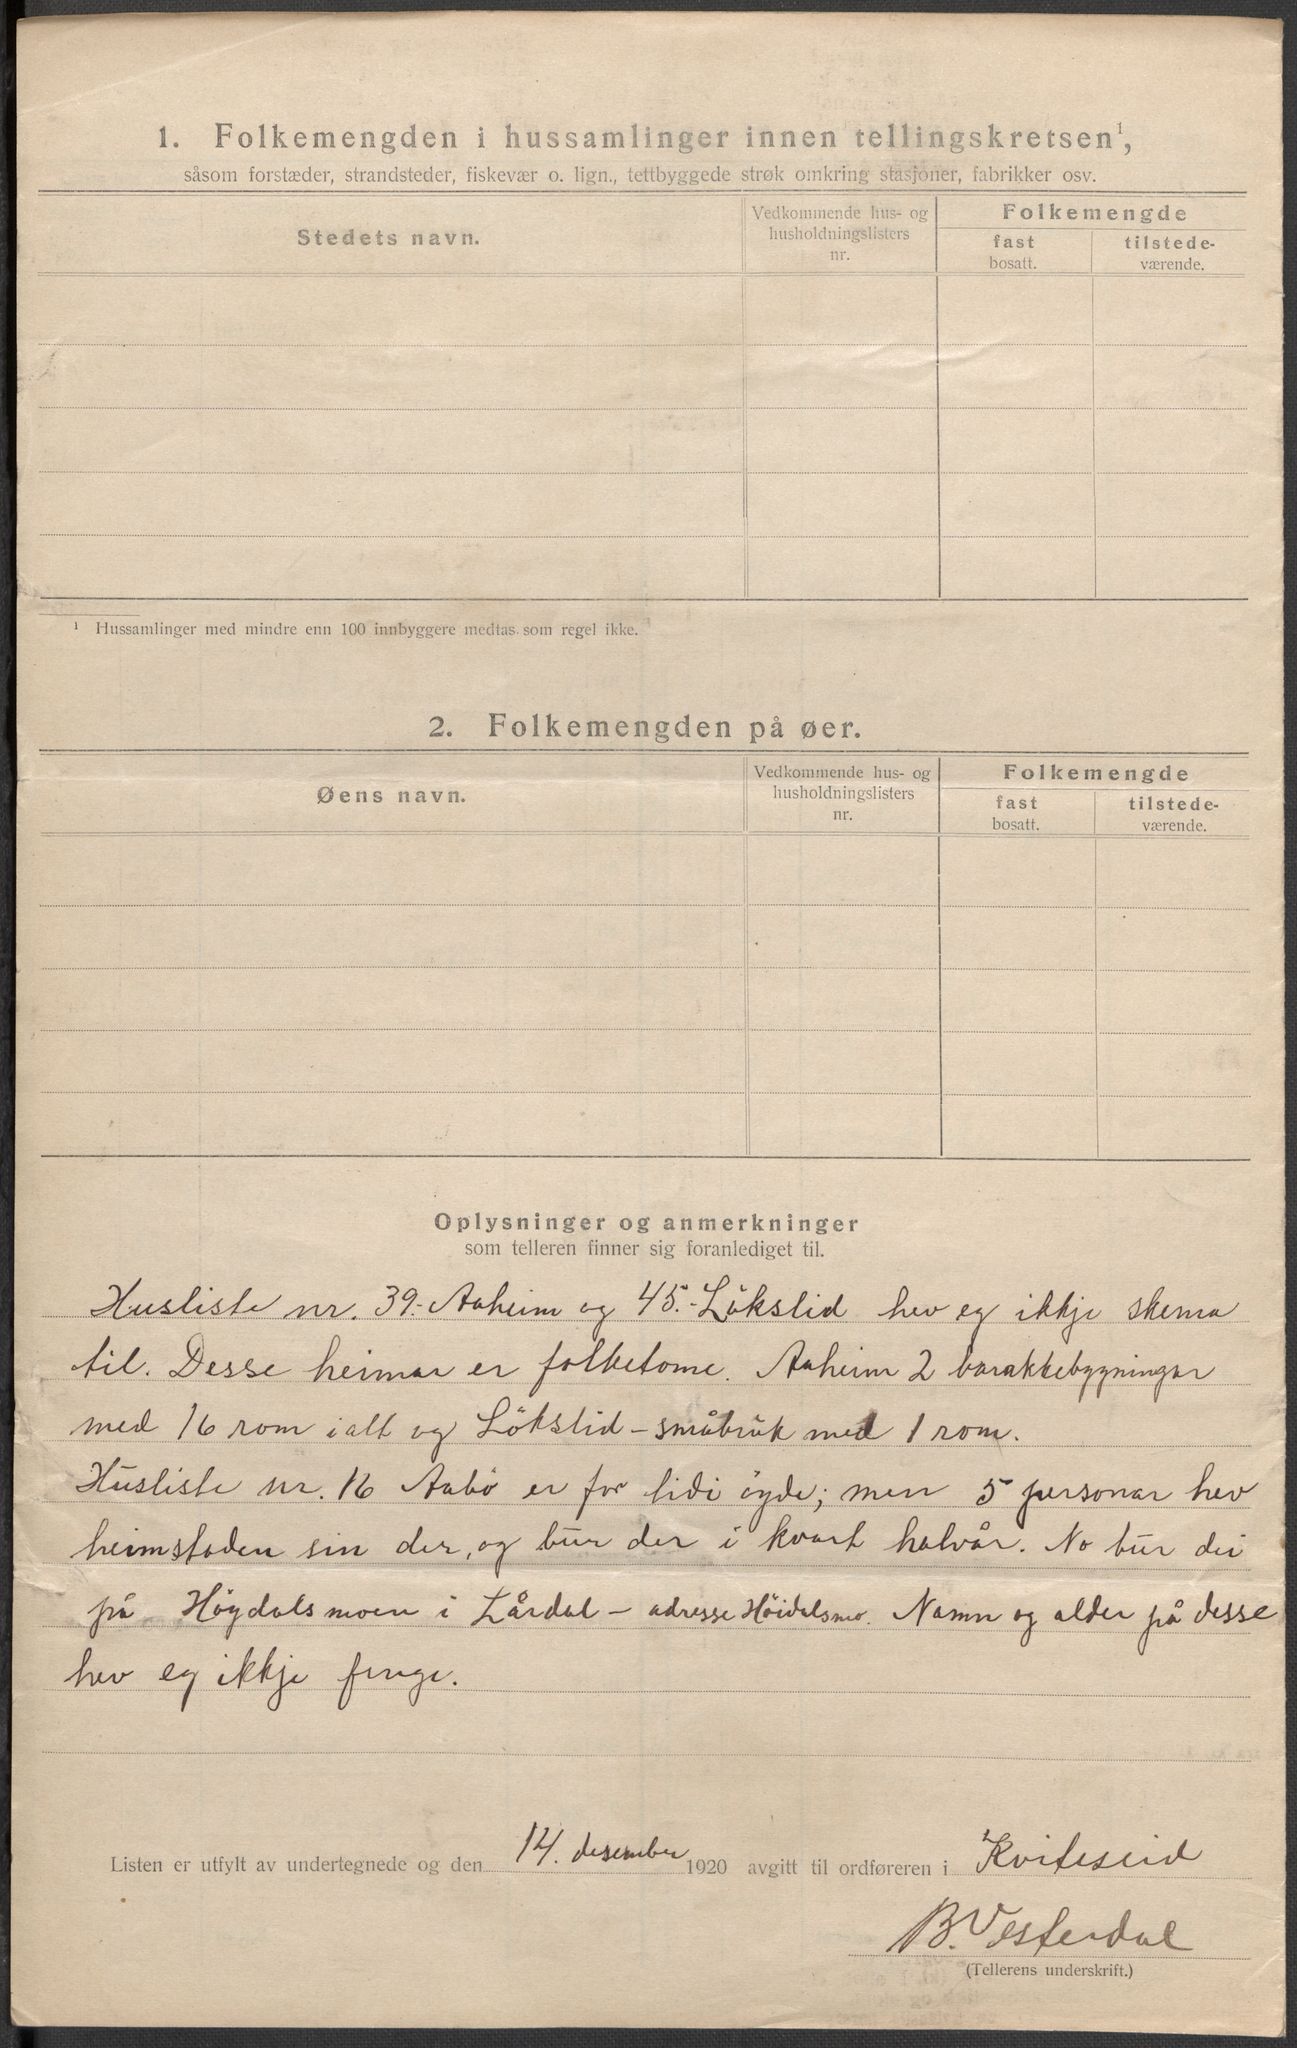 1. Folkemengden i hussamlinger innen tellingskretsen¹,
såsom forstæder, strandsteder, fiskevær o. lign., tettbyggede strøk omkring stasjoner, fabrikker osv.
Stedets navn.
Vedkommende hus- og
husholdningslisters
nr.
Folkemengde
fast
bosatt.
tilstede-
værende.
¹ Hussamlinger med mindre enn 100 innbyggere medtas som regel ikke.
2. Folkemengden på øer.
Øens navn.
Vedkommende hus- og
husholdningslisters
nr.
Folkemengde
fast
bosatt.
tilstede-
værende.
Oplysninger og anmerkninger
som telleren finner sig foranlediget til.
Husliste nr. 39.- Aaheim og 45.- Lökslid hev eg ikkje skema
til. Desse heimar er folketome. Aaheim 2 barakkebygningar
med 16 rom ialt og Lökslid - småbruk med 1 rom.
Husliste nr. 16 Aabö er for tidi öyde; men 5 personar hev
heimstaden sin der, og bur der i kvart halvår. No bur dei
på Höydalsmoen i Lårdal - adresse Höidalsmo. Namn og alder på desse
hev eg ikkje fenge.
Listen er utfylt av undertegnede og den 14. desember 1920 avgitt til ordføreren i Kviteseid
B. Vesterdal
(Tellerens underskrift.)